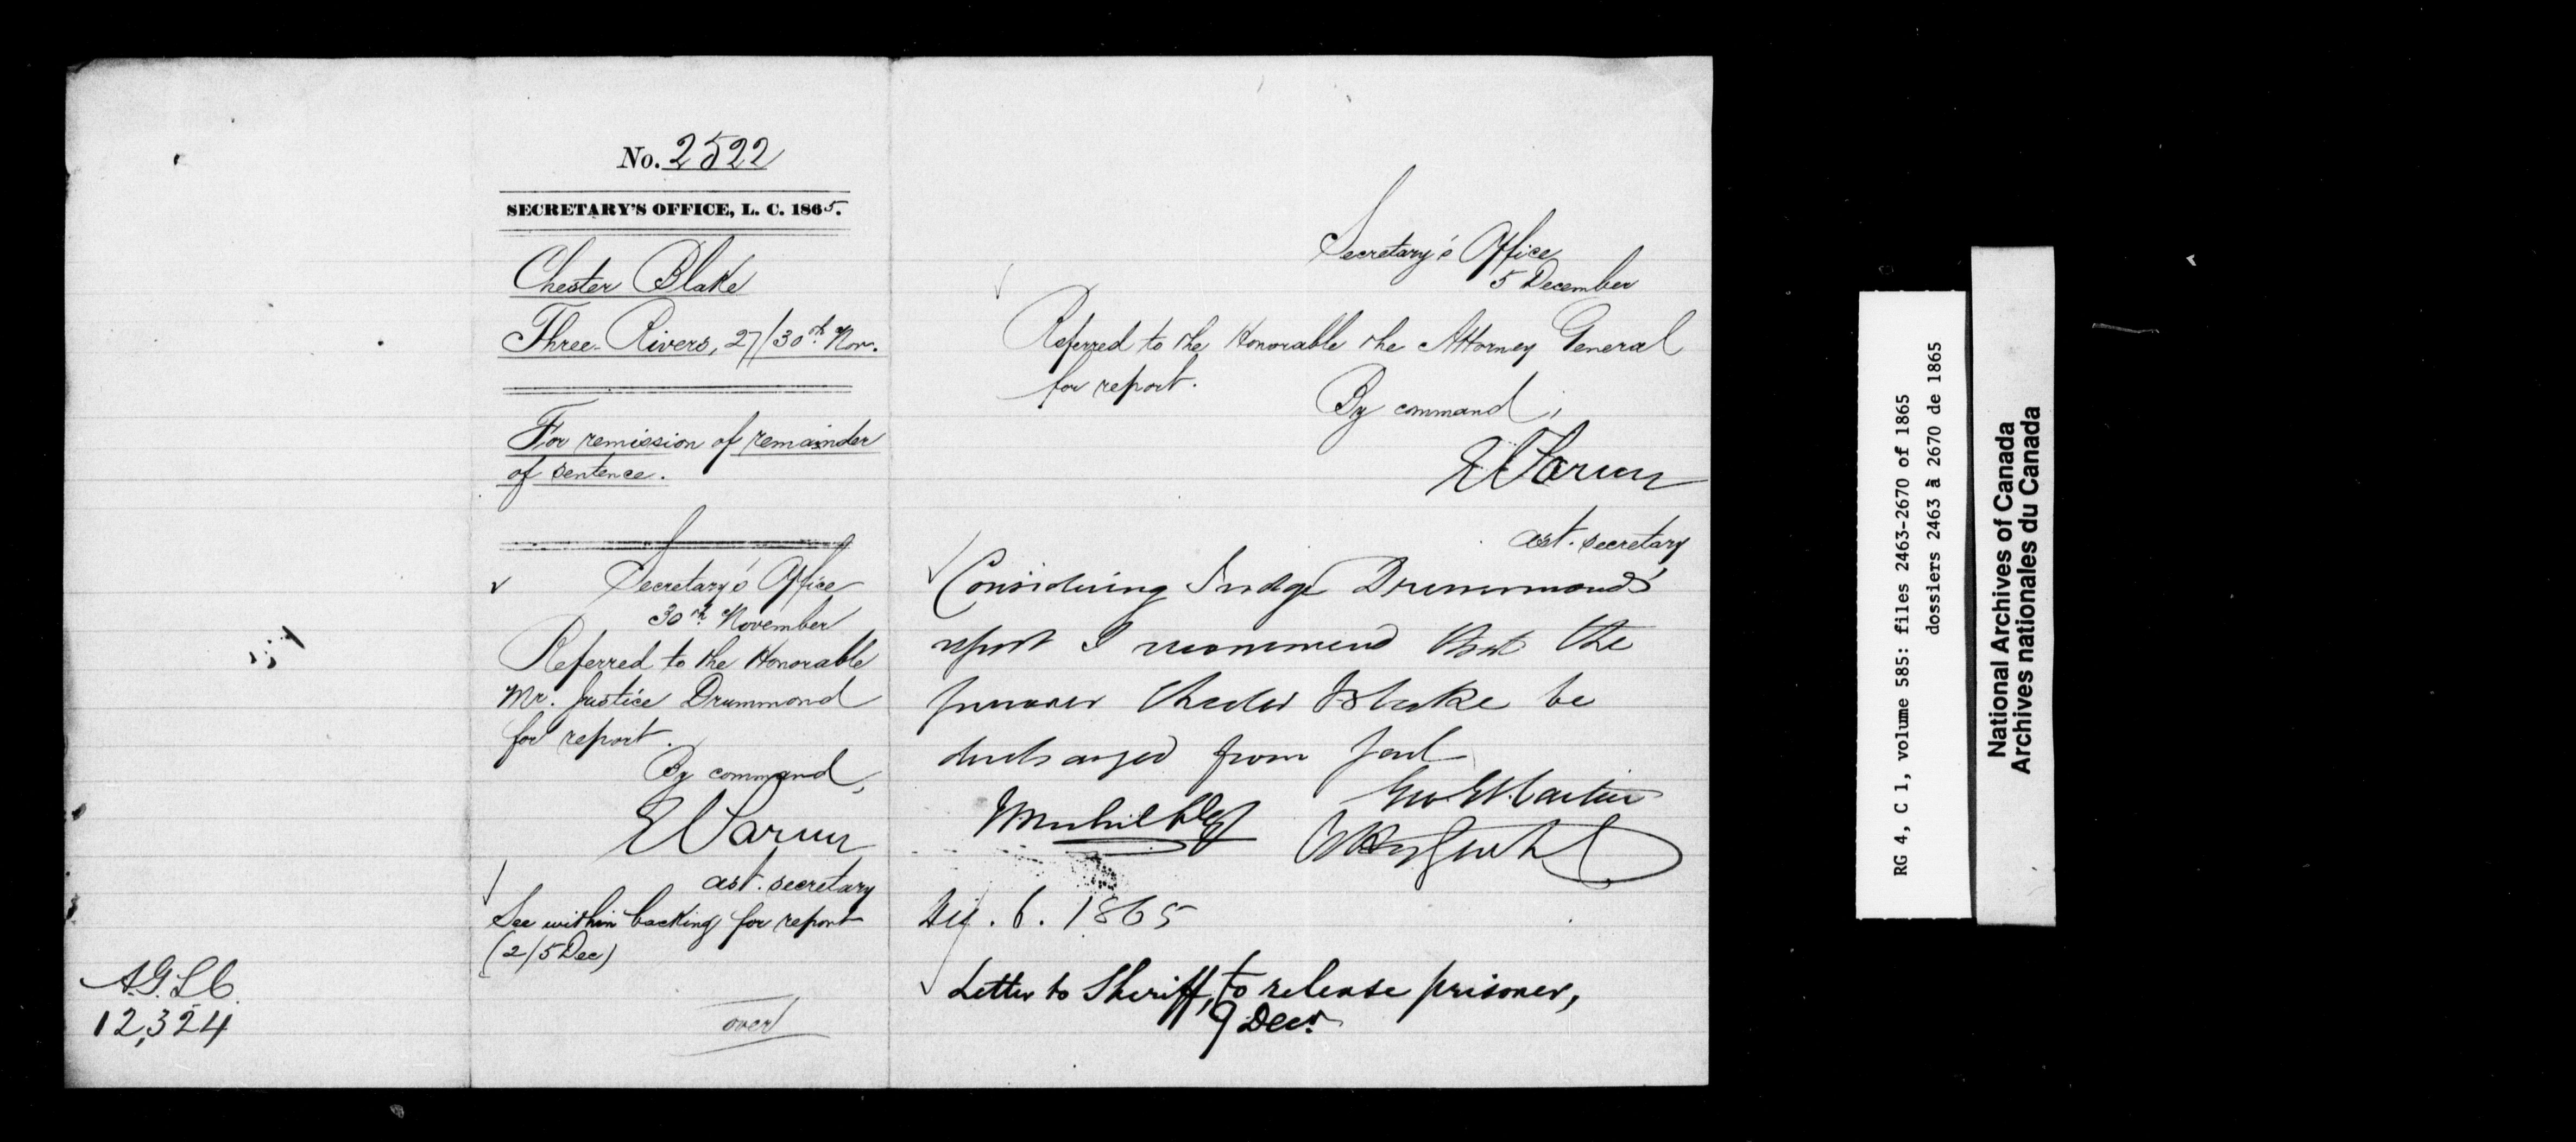 No. 2522
SECRETARY'S OFFICE, L. C. 1865.
Chester Blake
Three-Rivers, 27/30th Nov.
For remission of remainder
of sentence.
Secretary's Office
30th November
Referred to the Honorable
Mr. Justice Drummond
for report.
By command,
ast. secretary
See within backing for report
(2/5 Dec)
over
A.G.L.C.
12,324
Secretary's Office
5 December
Referred to the Honorable the Attorney General
for report.
By command,
ast. secretary
Considering Judge Drummond's
report I recommend that the
prisoner Chester Blake be
discharged from Jail
Geo. Et. Cartier
6. 1865
Letter to Sheriff, to release prisoner,
9 Decr.
RG 4, C 1, volume 585: files 2463-2670 of 1865
dossiers 2463 à 2670 de 1865
National Archives of Canada
Archives nationales du Canada